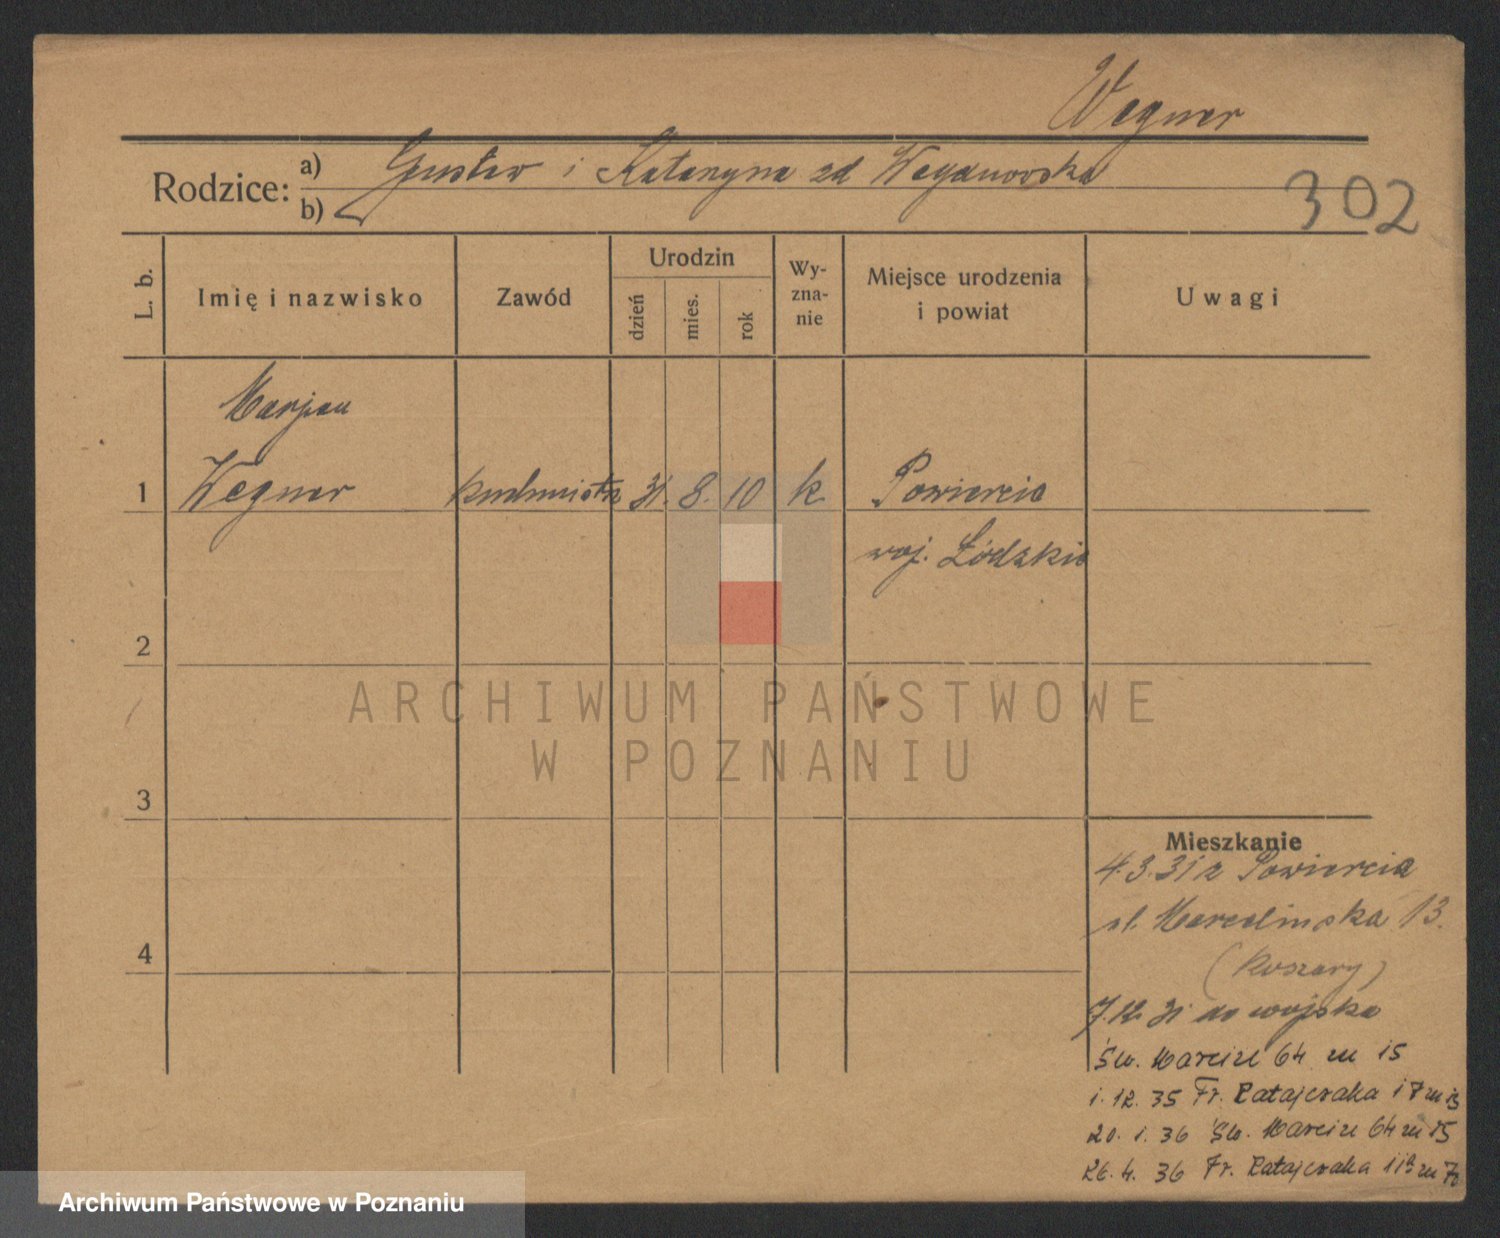 Wegner
Rodzice: a) Gustaw i Katarzyna zd
b)
302
L. b.
Imię i nazwisko
Zawód
Urodzin
dzień
mies.
rok
Wy-
zna-
nie
Miejsce urodzenia
i powiat
Uwagi
Marjan
1 Wegner 31. 8. 10 k. Powiercie
woj. Łódzkie
2
3
4
Mieszkanie
4.3.31 z Powiercia
ul. Marcelińska 13.
(Koszary)
7.12.31 do wojska
Św. Marcin 64 m 15
1.12.35 Fr. Ratajczaka 17 m 15
20.1.36 Św. Marcin 64 m 15
26.4.36 Fr. Ratajczaka
ARCHIWUM PAŃSTWOWE
W POZNANIU
Archiwum Państwowe w Poznaniu